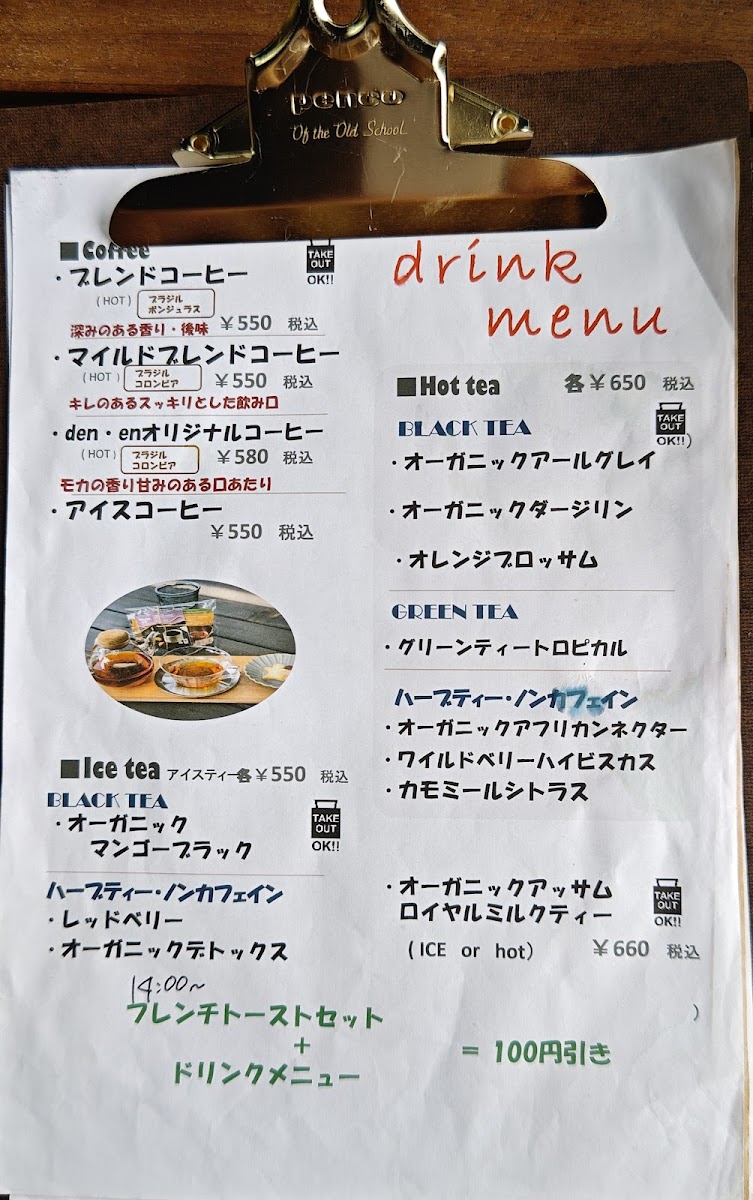 penco
Of the Old School
drink
menu
■Coffee
TAKE
OUT
OK!!
・ブレンドコーヒー
(HOT)
ブラジル
ボンジュラス
深みのある香り・後味
￥550 税込
・マイルドブレンドコーヒー
(HOT)
ブラジル
コロンビア
￥550 税込
キレのあるスッキリとした飲み口
・den・enオリジナルコーヒー
(HOT)
ブラジル
コロンビア
￥580 税込
モカの香り甘みのある口あたり
・アイスコーヒー
￥550 税込
■Ice tea アイスティー各￥550 税込
BLACK TEA
・オーガニック
マンゴーブラック
TAKE
OUT
OK!!
ハーブティー・ノンカフェイン
・レッドベリー
・オーガニックデトックス
■Hot tea 各￥650 税込
BLACK TEA
TAKE
OUT
OK!!)
・オーガニックアールグレイ
・オーガニックダージリン
・オレンジブロッサム
GREEN TEA
・グリーンティートロピカル
ハーブティー・ノンカフェイン
・オーガニックアフリカンネクター
・ワイルドベリーハイビスカス
・カモミールシトラス
・オーガニックアッサム
ロイヤルミルクティー
TAKE
OUT
OK!!
(ICE or hot) ￥660 税込
14:00~
フレンチトーストセット
)
+
= 100円引き
ドリンクメニュー